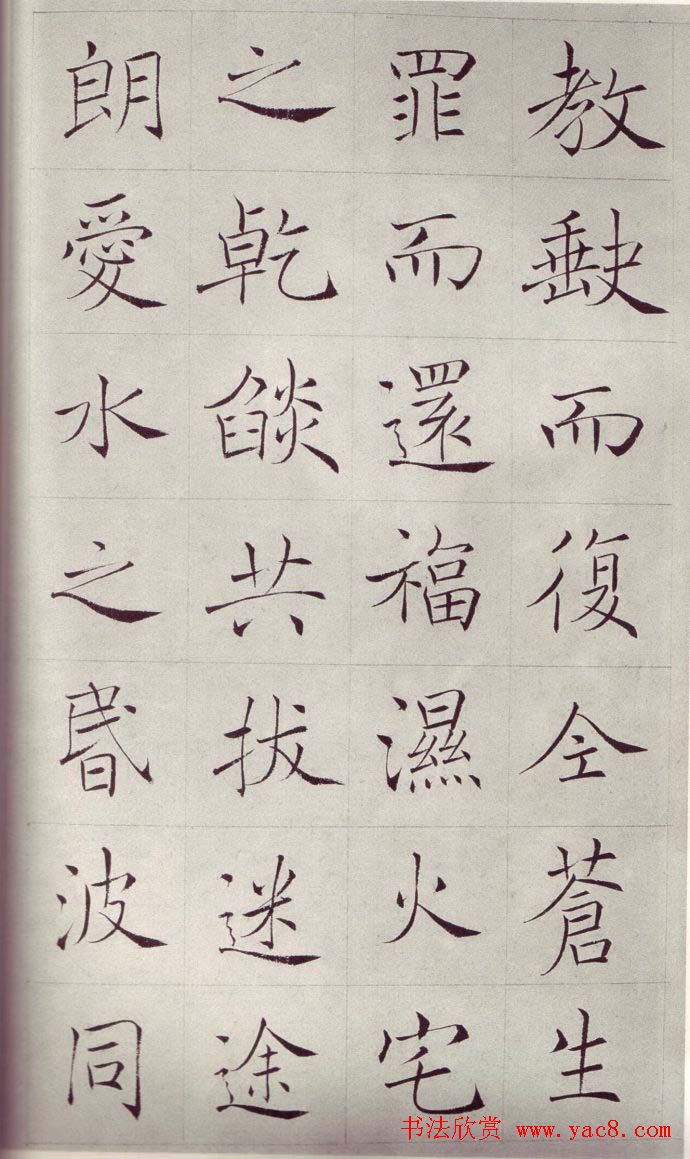 教缺而復仝蒼生
罪而還福濕火宅
之乾燄共拔迷途
朗愛水之昬波同
书法欣赏 www.yac8.com